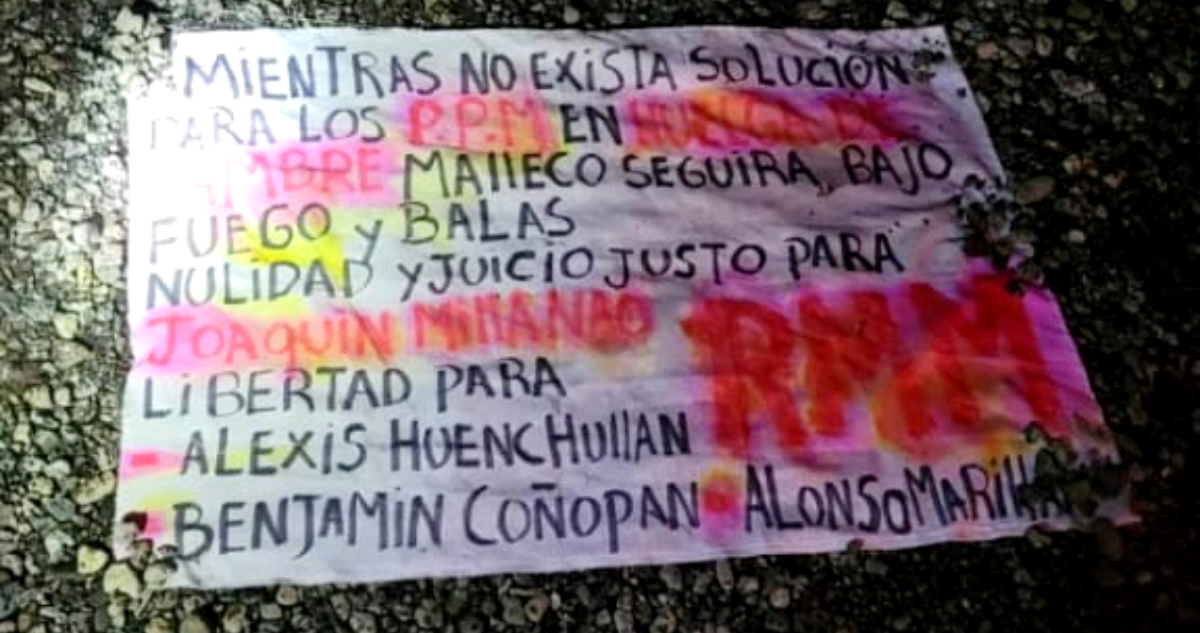 MIENTRAS NO EXISTA SOLUCIÓN
PARA LOS P.P.M EN HUELGA DE
HAMBRE MAllECO SEGUIRA, BAJO
FUEGO y BALAS
NULIDAD y JUICIO JUSTO PARA
JOAQUIN MILLANAO
RMM
LIBERTAD PARA
ALEXIS HUENCHUllAN
BENJAMIN COÑOPAN ALONSO